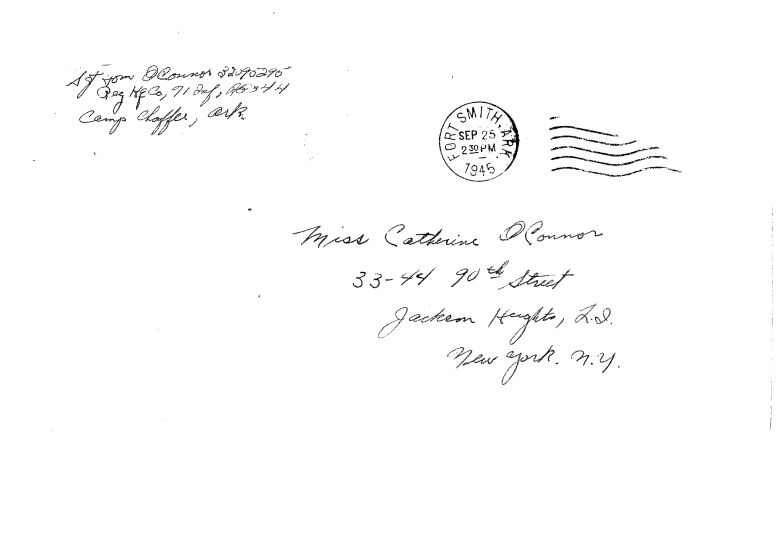 Sgt Tom O'Connor 32090295
Reg Hq Co, 71 Inf,
Camp Chaffee, Ark.
FORT SMITH, ARK.
SEP 25
2 30 PM
1945
Miss Catherine O'Connor
33-44 90th Street
Jackson Heights, L.I.
New York. N.Y.